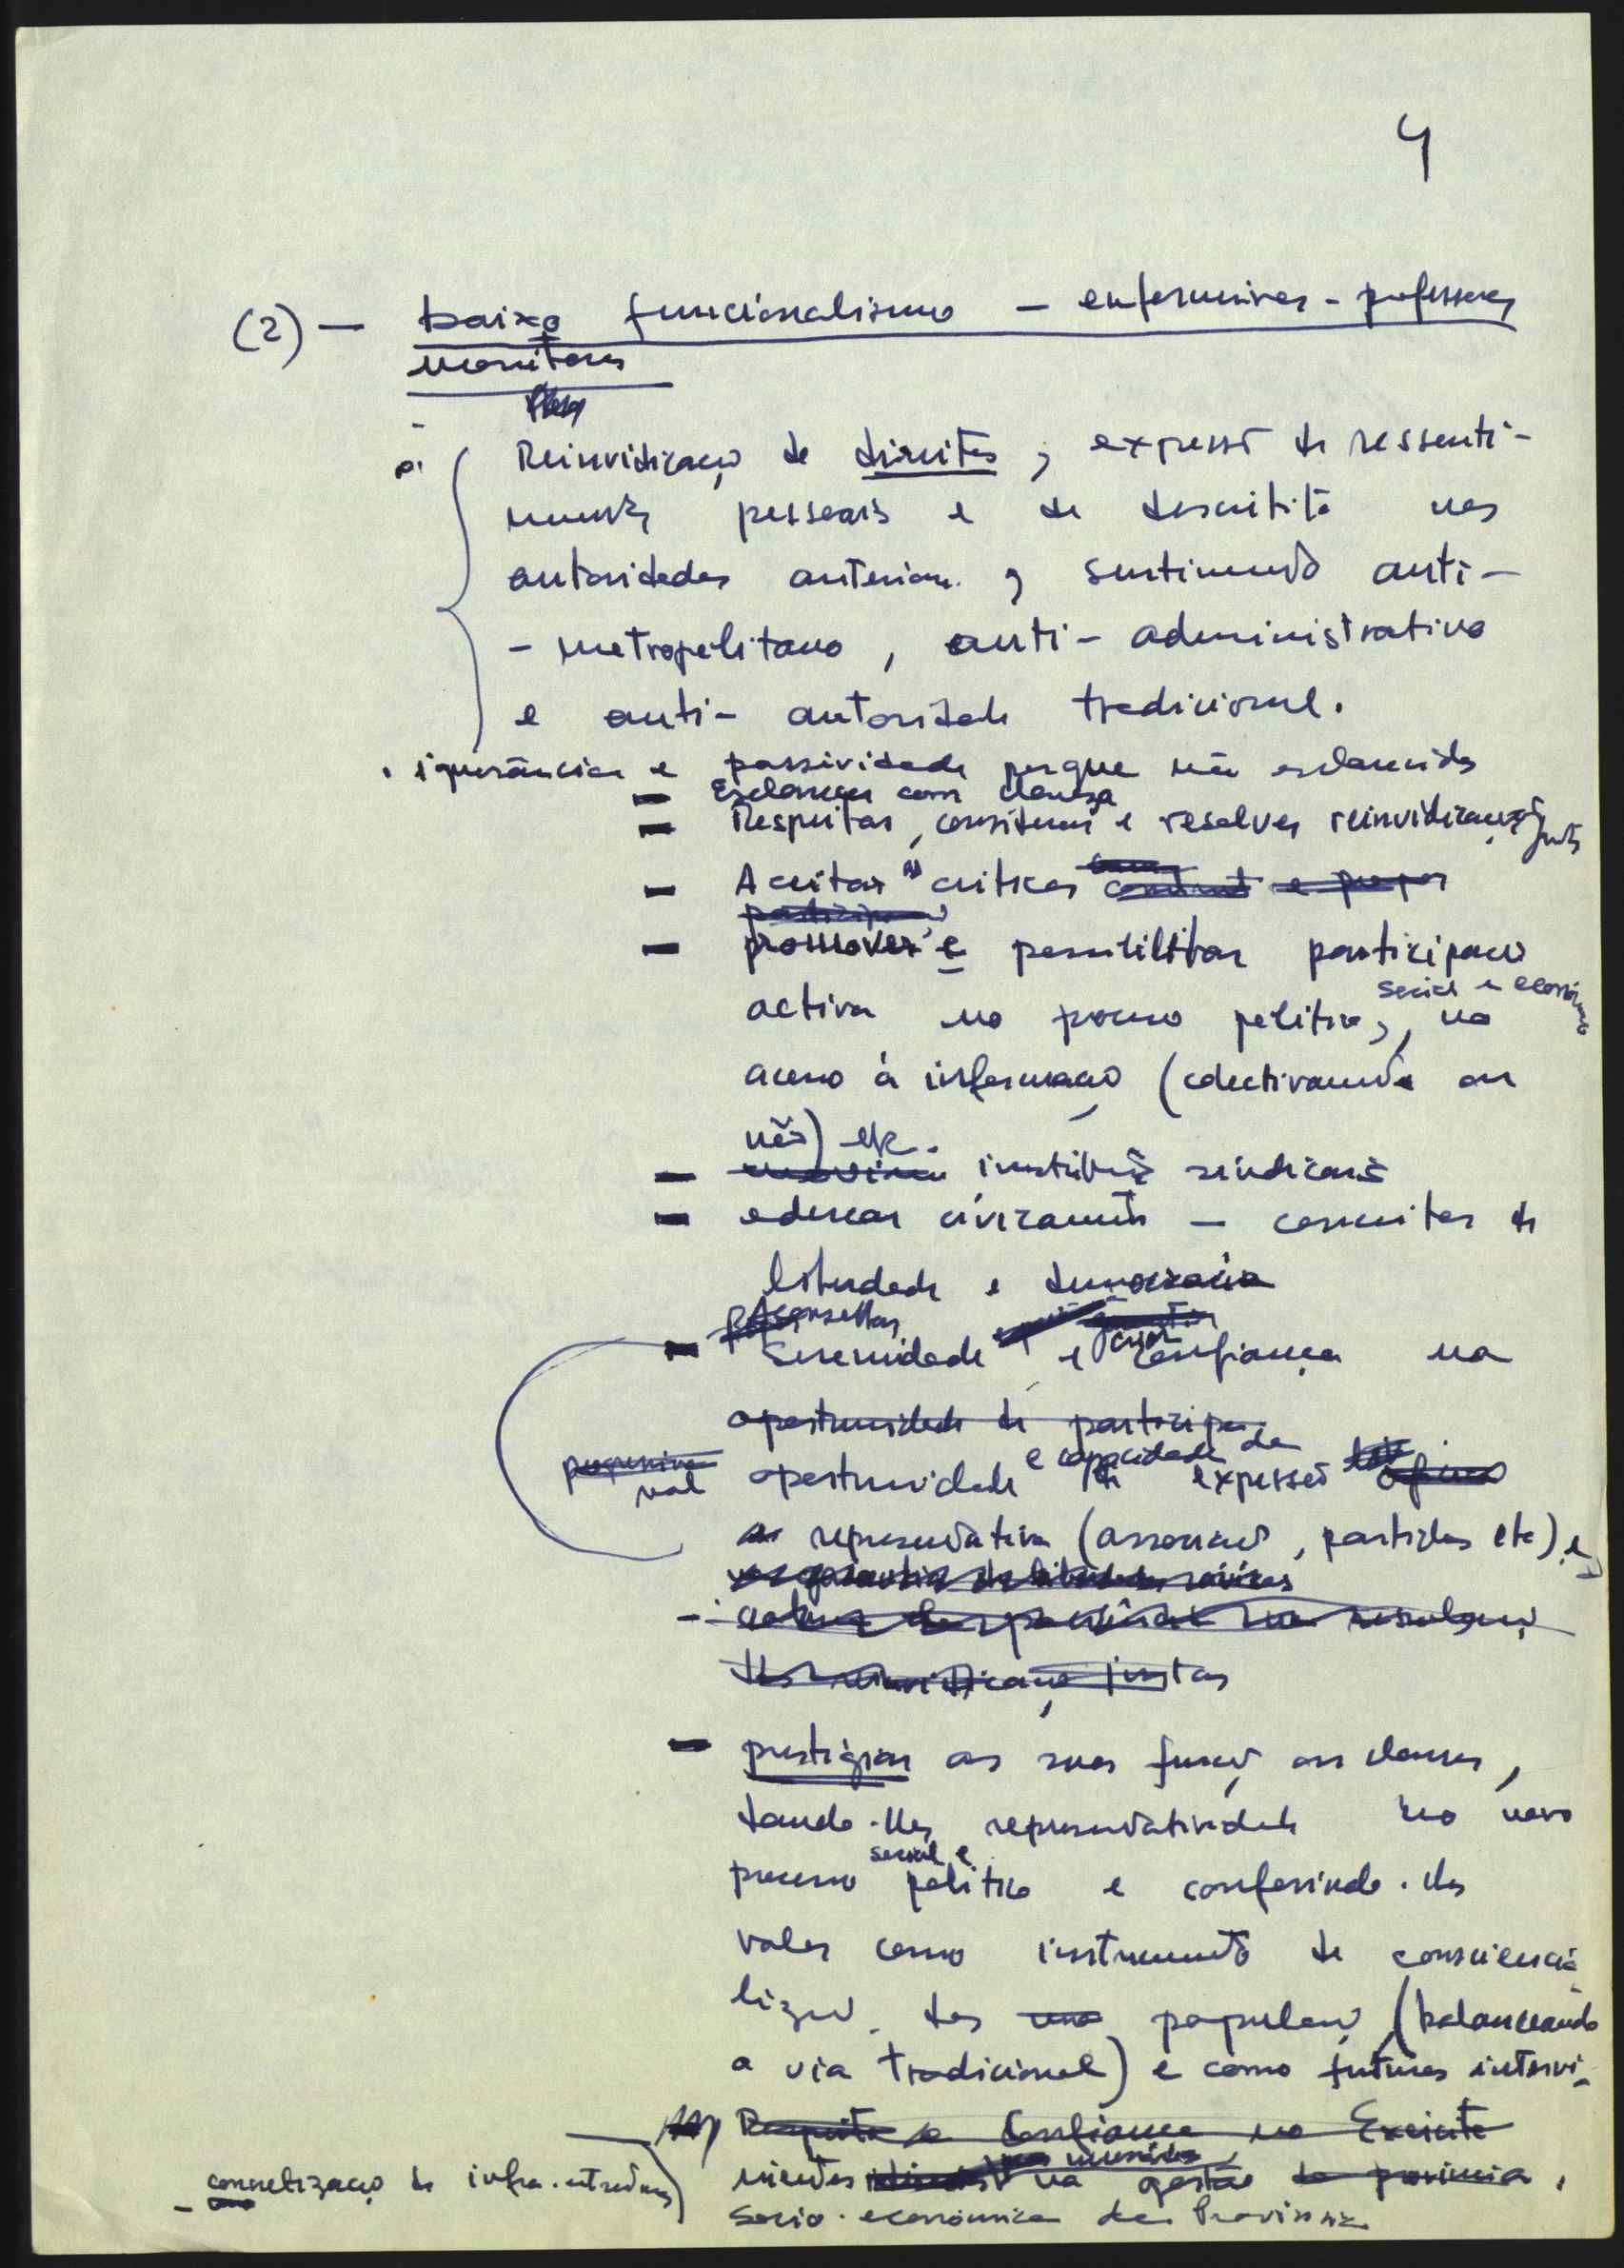 4
(2) — baixo funcionalismo — enfermeiros - professores
monitores
Reinvidicaço de direitos, expressõ de ressenti-
mentos pessoais e de descrédito nas
autoridades anteriores, sentimento anti-
- metropolitano, anti- administrativo
e anti- autoridade tradicional.
. ignorância e passividade porque não esclarecidos
— Esclarecer com clareza
— Respeitar, considerar e resolver reinvidicações justas
— Aceitar as críticas
— promover e possibilitar participaço
activa no processo politico, social e económico, no
acesso à informaço (colectivamente ou
não) etc.
— instituições sindicais
— educar civicamente — conceitos de
liberdade e democracia
— Aconselhar
serenidade e confiança na
oportunidade de participar
e capacidade de
oportunidade de expressão
representativa (associaço, partidos etc) e
— prestigiar as suas funções ou classes,
dando-lhes representatividade no novo
processo social e politico e conferindo-lhes
valor como instrumento de consciencia-
lizaço das populações (balanceando
a via tradicional) e como futuros intervi-
Respeito e Confiança no Exército
nientes na gestão da provincia.
- concretizaço de infra-estruturas
socio-económica da Provincia